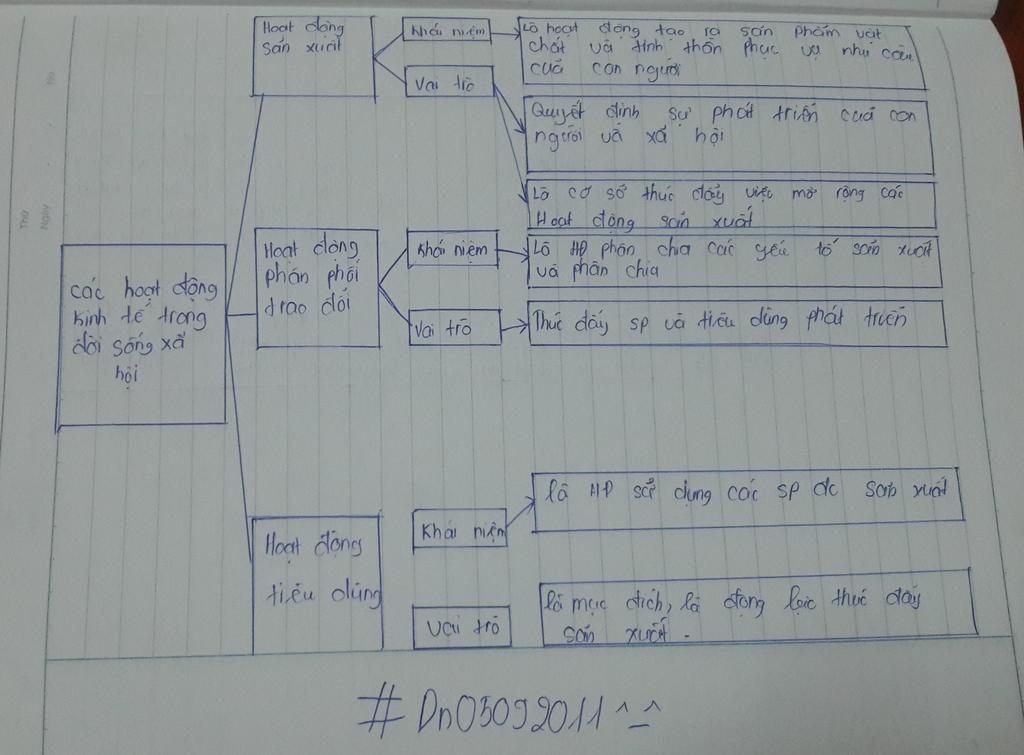 Hoạt động
sản xuất
Khái niệm
Là hoạt động tạo ra sản phẩm vật
chất và tinh thần phục vụ nhu cầu
của con người
Vai trò
Quyết định sự phát triển của con
người và xã hội
Là cơ sở thúc đẩy việc mở rộng các
Hoạt động sản xuất
các hoạt động
kinh tế trong
đời sống xã
hội
Hoạt động
phân phối
trao đổi
Khái niệm
Là HĐ phân chia các yếu tố sản xuất
và phân chia
Vai trò
Thúc đẩy sp và tiêu dùng phát triển
Hoạt động
tiêu dùng
Khái niệm
là HĐ sử dụng các sp đc sản xuất
Vai trò
là mục đích, là động lực thúc đẩy
sản xuất.
#Dn05092011^_^
Thứ
Ngày
No